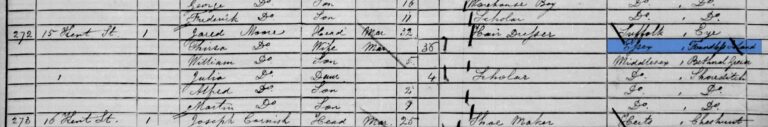 George Do Son 16 Warehouse Boy
Frederick Do Son 11 Scholar
272 15 Kent St. 1 Jared Moore Head Mar 32 Hair Dresser Suffolk, Eye
Thirsa Do Wife Mar 36 Essex, Foundless Island
William Do Son 5 Middlesex, Bethnal Green
Julia Do Daur 4 Scholar Do, Shoreditch
Alfred Do Son 2 Do, Do
Martin Do Son Do, Do
273 16 Kent St. 1 Joseph Cornish Head Mar 25 Shoe Maker Herts, Cheshunt